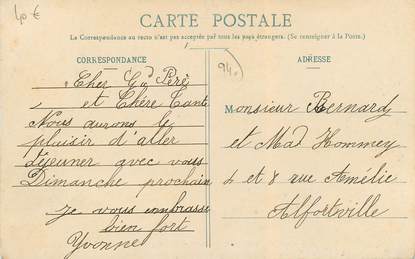 40 €
CARTE POSTALE
La Correspondance au recto n'est pas acceptée par tous les pays étrangers. (Se renseigner à la Poste.)
CORRESPONDANCE
94.
Cher Gd Père
et Chère Tante
Nous aurons le
plaisir d'aller
déjeuner avec vous
Dimanche prochain
je vous embrasse
bien fort
Yvonne
ADRESSE
Monsieur Bernardy
et Mad Hommey
4 et 8 rue Amélie
Alfortville